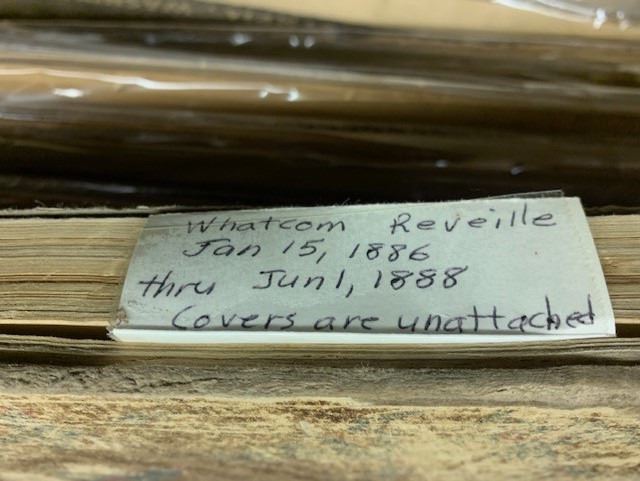 Whatcom Reveille
Jan 15, 1886
thru Jun 1, 1888
Covers are unattached